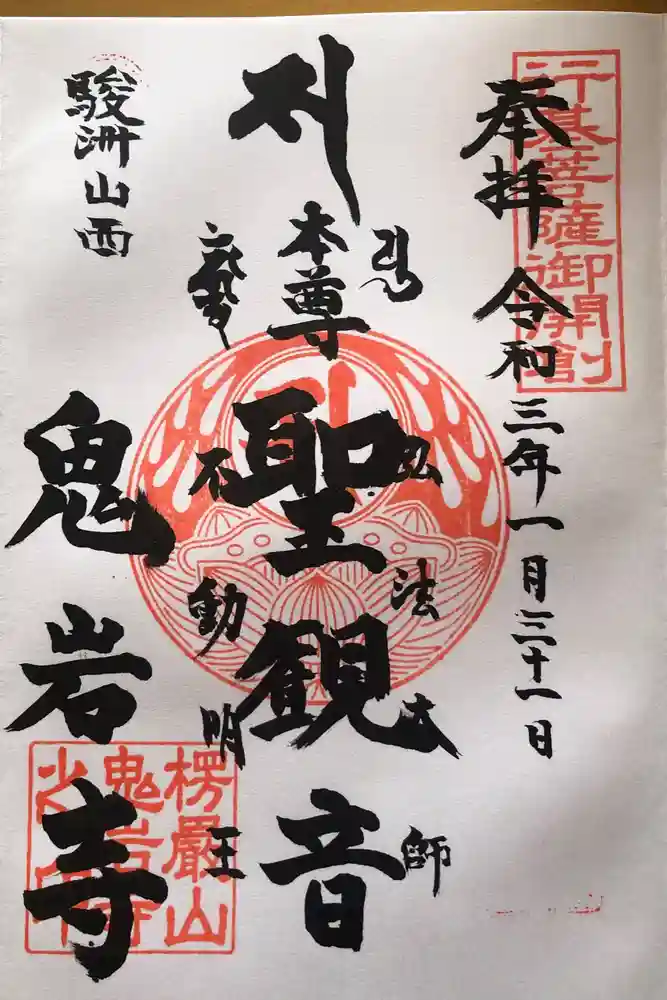 行基菩薩御開創
奉拝 令和三年一月三十一日
弘法大師
本尊 聖観音
不動明王
駿洲山西
鬼岩寺
楞嚴山
鬼岩寺